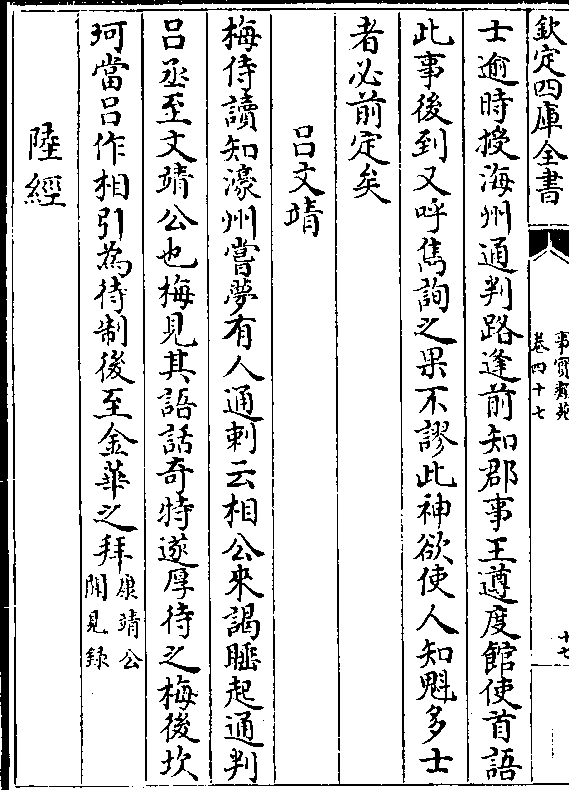 欽定四庫全書
事實類苑
卷四十七
十七
士逾時授海州通判路逢前知郡事王遵度館使首語
此事後到又呼雋詢之果不謬此神欲使人知魁多士
者必前定矣
吕文靖
梅侍讀知濠州嘗夢有人通刺云相公來謁睡起通判
吕丞至文靖公也梅見其語話奇特遂厚待之梅後坎
坷當吕作相引為待制後至金華之拜康靖公
聞見錄
陸經